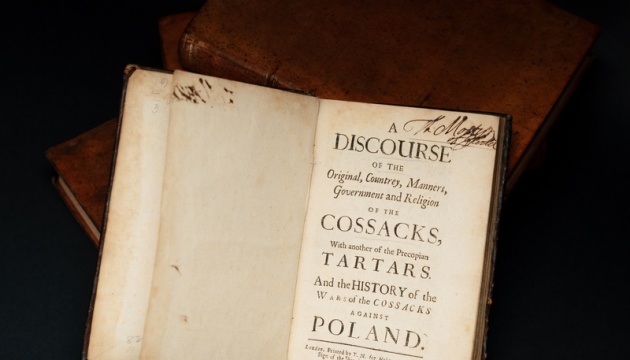 A
DISCOURSE
OF THE
Original, Countrey, Manners,
Government and Religion
OF THE
COSSACKS,
With another of the Precopian
TARTARS.
And the HISTORY of the
WARS of the COSSACKS
AGAINST
POLAND.
London, Printed by T. N. for